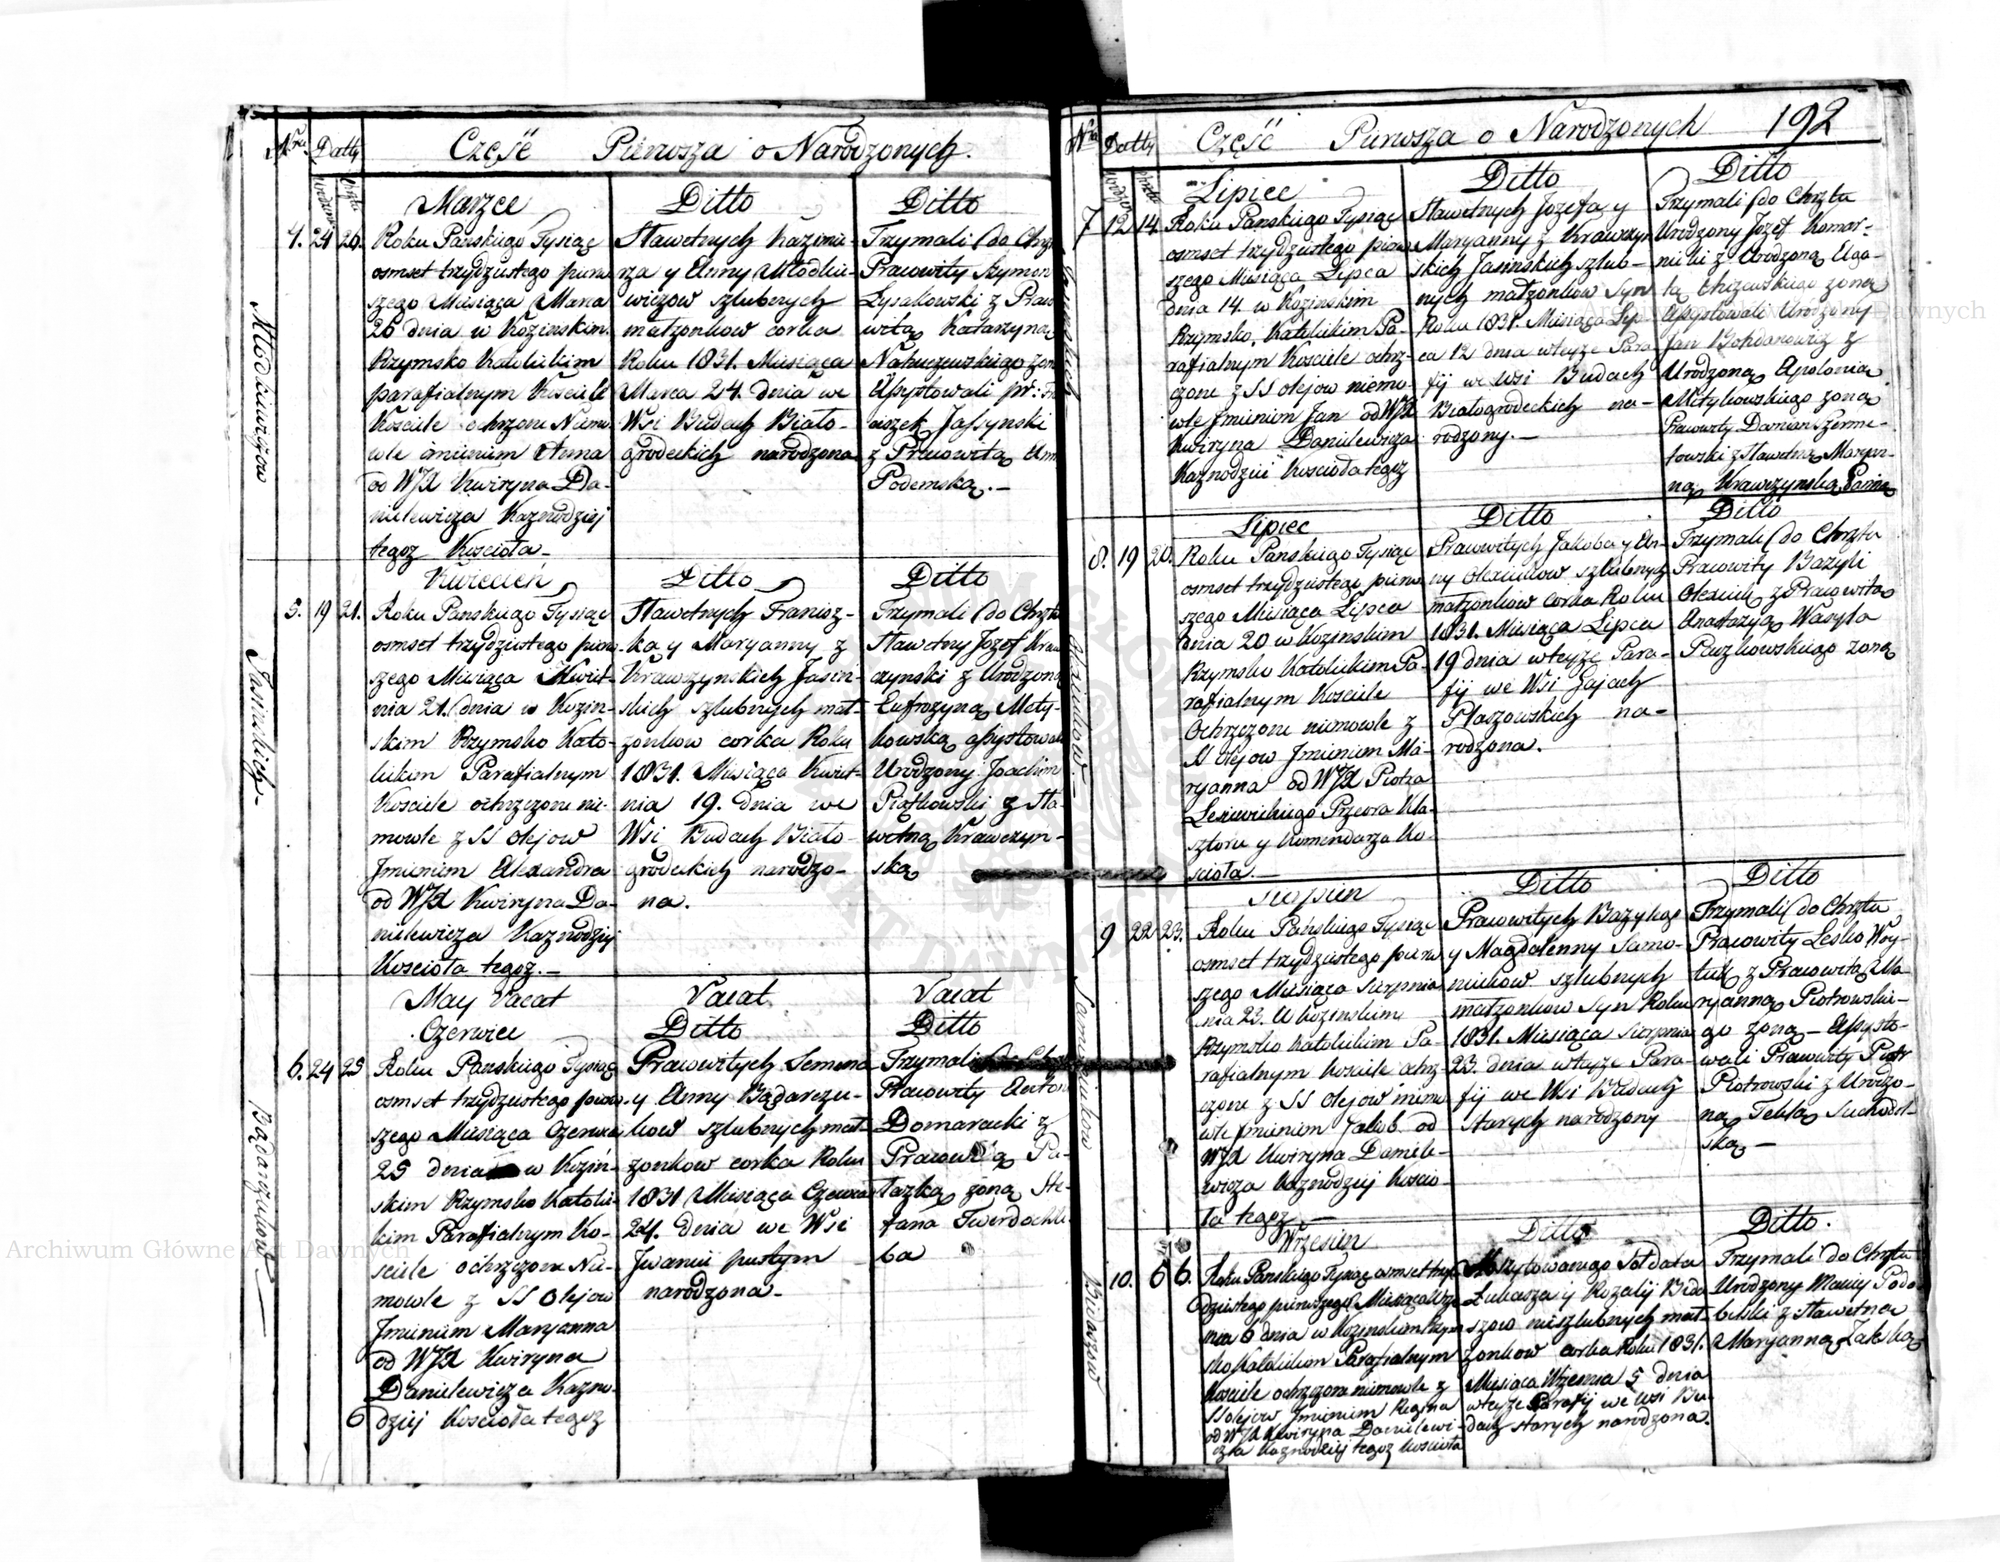 Nra Datty Część Pierwsza o Narodzonych.
Marzec
4. 24 26.
Roku Panskiego Tysiąc
osmset trzydziestego pierw
szego Miesiąca Marca
26 dnia w Kozinskim
Rzymsko Katolickim
parafialnym Kosciele
Kosciele ochrzczone Niemo
wle imieniem Anna
od WJX Kwiryna Da-
nilewicza Kaznodziej
tegoz Kosciola _
Ditto
Slawetnych Kazimie-
rza y Anny Młodkie-
wiczow szlubnych
małzonkow corka
Roku 1831. Miesiąca
Marca 24. dnia we
Wsi Budach Biało-
grodeckich narodzona
Ditto
Trzymali do Chrzt
Pracowity Szymon
Łysakowski z Praco
witą Katarzyną
żon
Assystowali pr: Fr
ciszek Jassynski
z Pracowitą Ann
Podemską. _
Młodkiewiczow
Kwiecień
5. 19 21.
Roku Panskiego Tysiąc
osmset trzydziestego pierw
szego Miesiąca Kwiet-
nia 21. dnia w Kozin-
skim Rzymsko Kato-
lickim Parafialnym
Kosciele ochrzczone nie-
mowle z SS olejow
Jmieniem Alexandra
od WJX Kwiryna Da-
nilewicza Kaznodziej
Kosciola tegoz. _
Ditto
Slawetnych Francisz-
ka y Maryanny z
Krawczynskich Jasin-
skich szlubnych mał-
zonkow corka Roku
1831. Miesiąca Kwiet-
nia 19. dnia we
Wsi Budach Biało-
grodeckich narodzo-
na.
Ditto
Trzymali do Chrztu
Slawetny Jozef Kraw
czynski z Urodzoną
Eufrozyną Mety-
kowską assystowali
Urodzony Joachim
Piątkowski z Sła-
wetną Krawczyn-
ską
Jasinskich _
May Vacat
Vacat
Vacat
Czerwiec
6. 24 25
Roku Panskiego Tysiąc
osmset trzydziestego pierw
szego Miesiąca Czerwca
25 dnia w Koziń-
skim Rzymsko Katolic-
kim Parafialnym Ko-
sciele ochrzczone Nie-
mowle z SS Olejow
Jmieniem Maryanna
od WJX Kwiryna
Danilewicza Kazno-
6 dziej Kosciola tegoz
Ditto
Pracowitych Semena
y Anny Bądarczu-
kow szlubnych mał-
zonkow corka Roku
1831 Miesiąca Czerwca
24. dnia we Wsi
Jwaniu pustym
narodzona _
Ditto
Trzymali do Chrzt
Pracowity Anton
Domaracki z
Pracowitą Pa-
lazką żoną Ste-
fana Twerdochle
ba
Bądarczukow
Nra Datty Część Pierwsza o Narodzonych 192
Lipiec
7 12 14
Roku Panskiego Tysiąc
osmset trzydziestego pierw
szego Miesiąca Lipca
dnia 14. w Kozinskim
Rzymsko. Katolickim Pa-
rafialnym Kosciele ochrz-
czone z SS olejow niemo
wle Jmieniem Jan od WJX
Kwiryna Danilewicza
Kaznodzieii Kosciola tegoz
Ditto
Slawetnych Jozefa y
Maryanny z Krawczyn
skich Jasinskich szlub-
nych małzonkow Syn
Roku 1831. Miesiąca Lip-
ca 12 dnia wteyze Para-
fij we Wsi Budach
Białogrodeckich na-
rodzony. _
Ditto
Trzymali do Chrztu
Urodzony Jozef Komar-
nicki z Urodzoną Aga-
tą żoną
Assystowali Urodzony
Jan Bohdanowicz z
Urodzoną Apolonią
Mitykowskiego zoną
Pracowity Damian Szerme-
towski z Slawetną Maryan-
ną Krawczynską Panną
Jasinskich
Lipiec
8. 19 20.
Roku Panskiego Tysiąc
osmset trzydziestego pierw
szego Miesiąca Lipca
dnia 20 w Kozinskim
Rzymsko Katolickim Pa-
rafialnym Kosciele
Ochrzczone niemowle z
SS olejow Jmieniem Ma-
ryanna od WJX Piotra
Lesiewickiego Przeora Kla-
sztoru y Komendarza Ko-
sciola. _
Ditto
Pracowitych Jakoba y An-
ny Olexiukow szlubnych
małzonkow corka Roku
1831. Miesiąca Lipca
19 dnia wteyze Para-
fij we Wsi Gajach
Płaszowskich na-
rodzona.
Ditto
Trzymali do Chrztu
Pracowity Bazyli
Olexiuk z Pracowitą
Anastazyą Wasyla
Paczkowskiego zoną
Olexiukow. _
Sierpień
9 22 23.
Roku Pańskiego Tysiąc
osmset trzydziestego pierw
szego Miesiąca Sierpnia
dnia 23. w Kozinskim
Rzymsko Katolickim Pa-
rafialnym Kosciele ochrz
czone z SS olejow niemo
wle Jmieniem Jakob od
WJX Kwiryna Danile-
wicza Kaznodziej Koscio-
ła tegoz _
Ditto
Pracowitych Bazylego
y Magdalenny Samo-
niukow szlubnych
małzonkow Syn Roku
1831. Miesiąca Sierpnia
23. dnia wteyze Para-
fij we Wsi Budach
Starych narodzony
Ditto
Trzymali do Chrztu
Pracowity Lesko Woy-
tiuk z Pracowitą Ma-
ryanną Piotrowskie-
go zoną _ Assysto-
wali Pracowity Piotr
Piotrowski z Urodzo-
ną Teklą Suchodol-
ską _
Samoniukow
Wrzesień
10. 6 6.
Roku Panskiego Tysiąc osmset trzy
dziestego pierwszego Miesiąca Wrze
nia 6 dnia w Kozinskim Rzym
sko Katolickim Parafialnym
Kosciele ochrzczone niemowle z
SS olejow Jmieniem Regina
od WJX Kwiryna Danilewi-
cza Kaznodziej tegoz kosciola
Ditto
Sołdata
Łukasza y Rozalij Bida
szow nieszlubnych mał-
zonkow corka Roku 1831.
Miesiąca Wrzesnia 5 dnia
wteyze Parafij we Wsi Bu
dach starych narodzona.
Ditto.
Trzymali do Chrztu
Urodzony Maciej Podo-
bilski z Slawetną
Maryanną Zalską
Archiwum Główne Akt Dawnych
Archiwum Główne Akt Dawnych